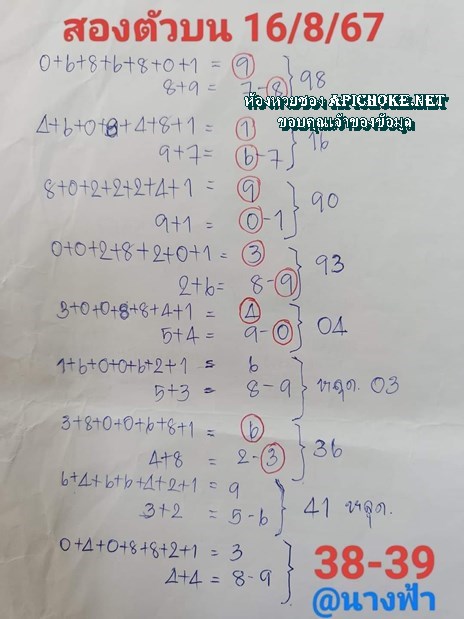 สองตัวบน 16/8/67
0+6+8+6+8+0+1 = 9
8+9 = 7-8 } 98
ห้องหวยซอง APICHOKE.NET
ขอบคุณเจ้าของข้อมูล
4+6+0+8+4+8+1 = 1
9+7= 6-7 } 16
8+0+2+2+2+4+1 = 9
9+1 = 0-1 } 90
0+0+2+8+2+0+1 = 3
2+6= 8-9 } 93
3+0+0+8+8+4+1 = 4
5+4 = 9-0 } 04
1+6+0+0+6+2+1 = 6
5+3 = 8-9 } หลุด. 03
3+8+0+0+6+8+1 = 6
4+8 = 2-3 } 36
6+4+6+6+4+2+1 = 9
3+2 = 5-6 } 41 หลุด.
0+4+0+8+8+2+1 = 3
4+4 = 8-9 }
38-39
@นางฟ้า